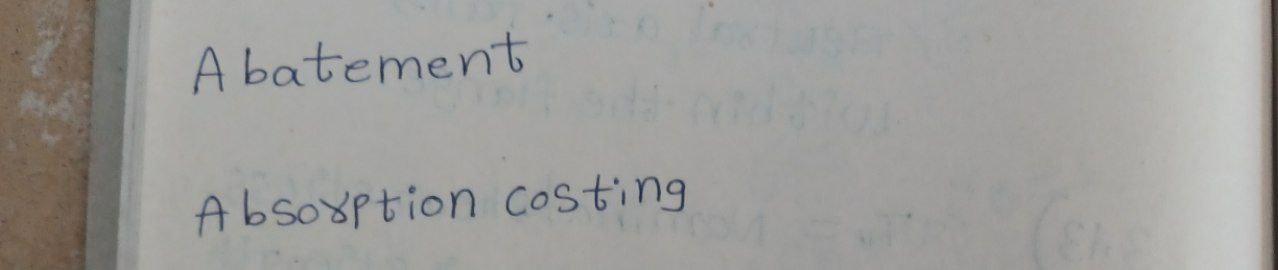 Abatement
Absorption costing